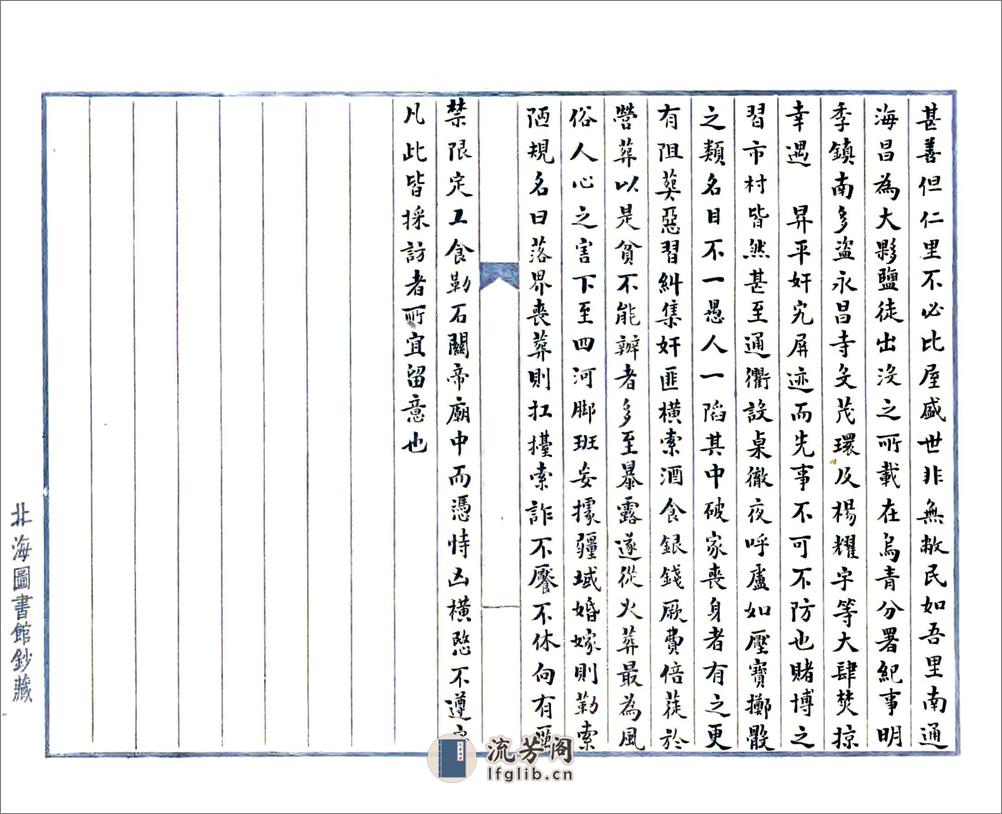 甚善但仁里不必比屋盛世非無敝民如吾里南通
海昌為大夥鹽徒出沒之所載在烏青分署紀事明
季鎮南多盜永昌寺文茂環及楊耀宇等大肆焚掠
幸遇 昇平奸宄屏迹而先事不可不防也賭博之
習市村皆然甚至通衢設桌徹夜呼盧如壓寶擲骰
之類名目不一愚人一蹈其中破家喪身者有之更
有阻葬惡習糾集奸匪橫索酒食銀錢厥費倍蓰於
營葬以是貧不能辦者多至暴露遂從火葬最為風
俗人心之害下至四河脚班妄據疆域婚嫁則勒索
陋規名曰落界喪葬則扛擡索詐不饜不休向有
禁限定工食勒石關帝廟中而憑恃凶橫愍不遵
凡此皆採訪者所宜留意也
北海圖書館鈔藏
流芳阁
lfglib.cn